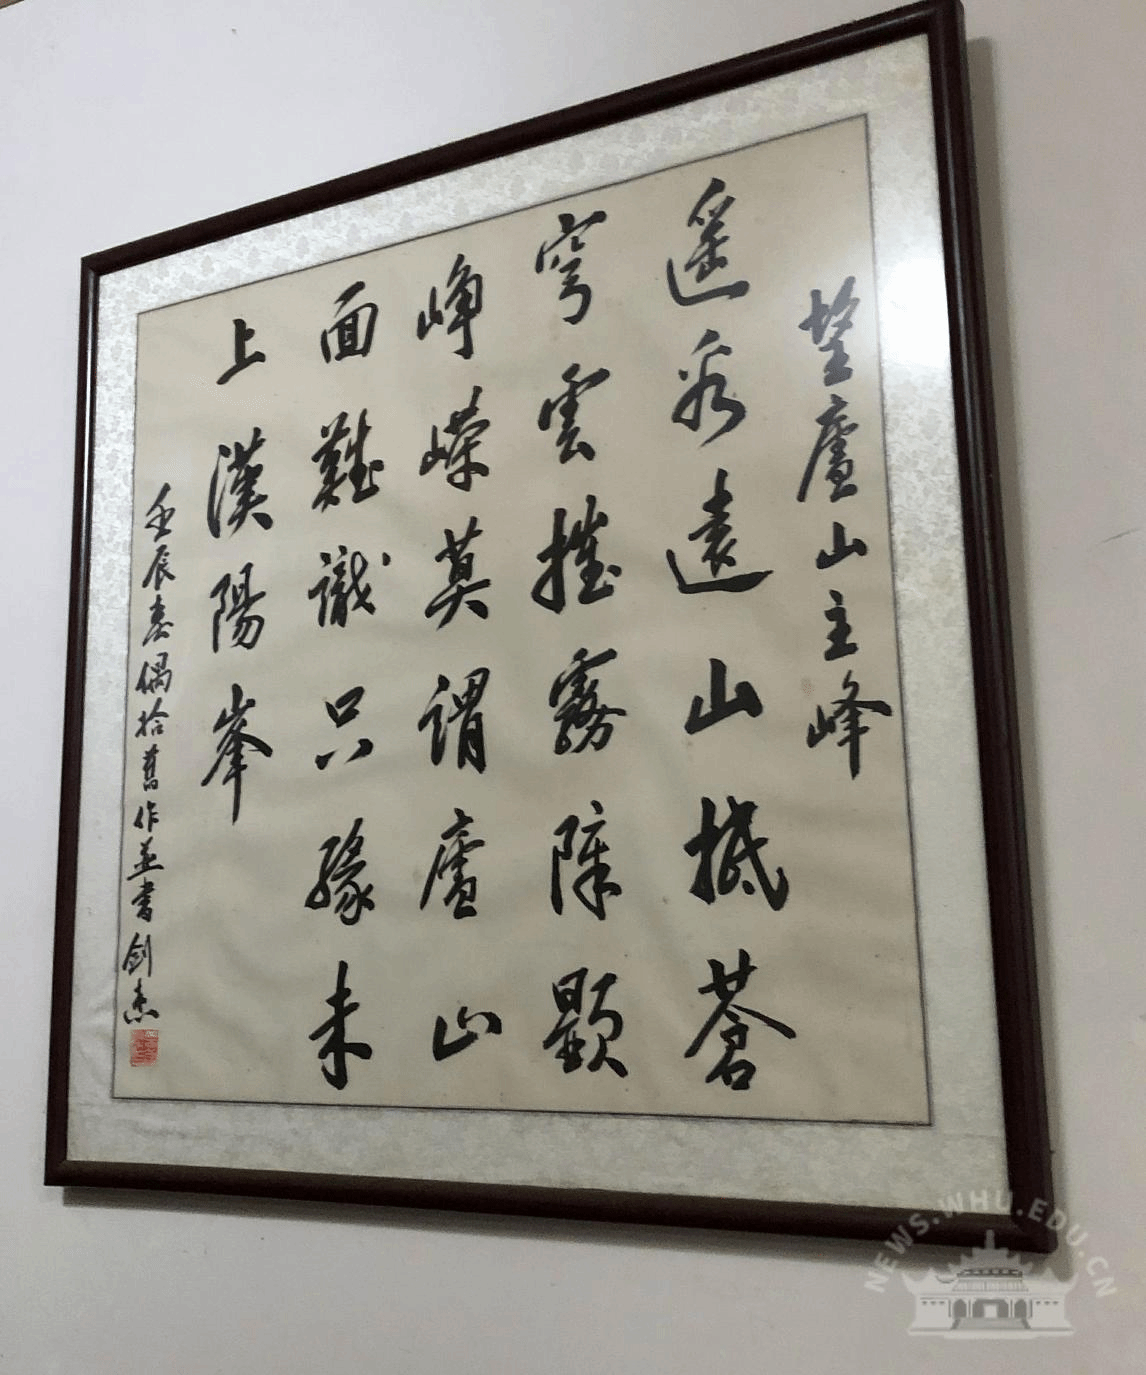 望廬山主峰
遥看遠山抵蒼
穹雲摧霧障顯
崢嶸莫謂廬山
面難識只緣未
上漢陽峯
壬辰春偶拾舊作並書劍杰
NEWS.WHU.EDU.CN